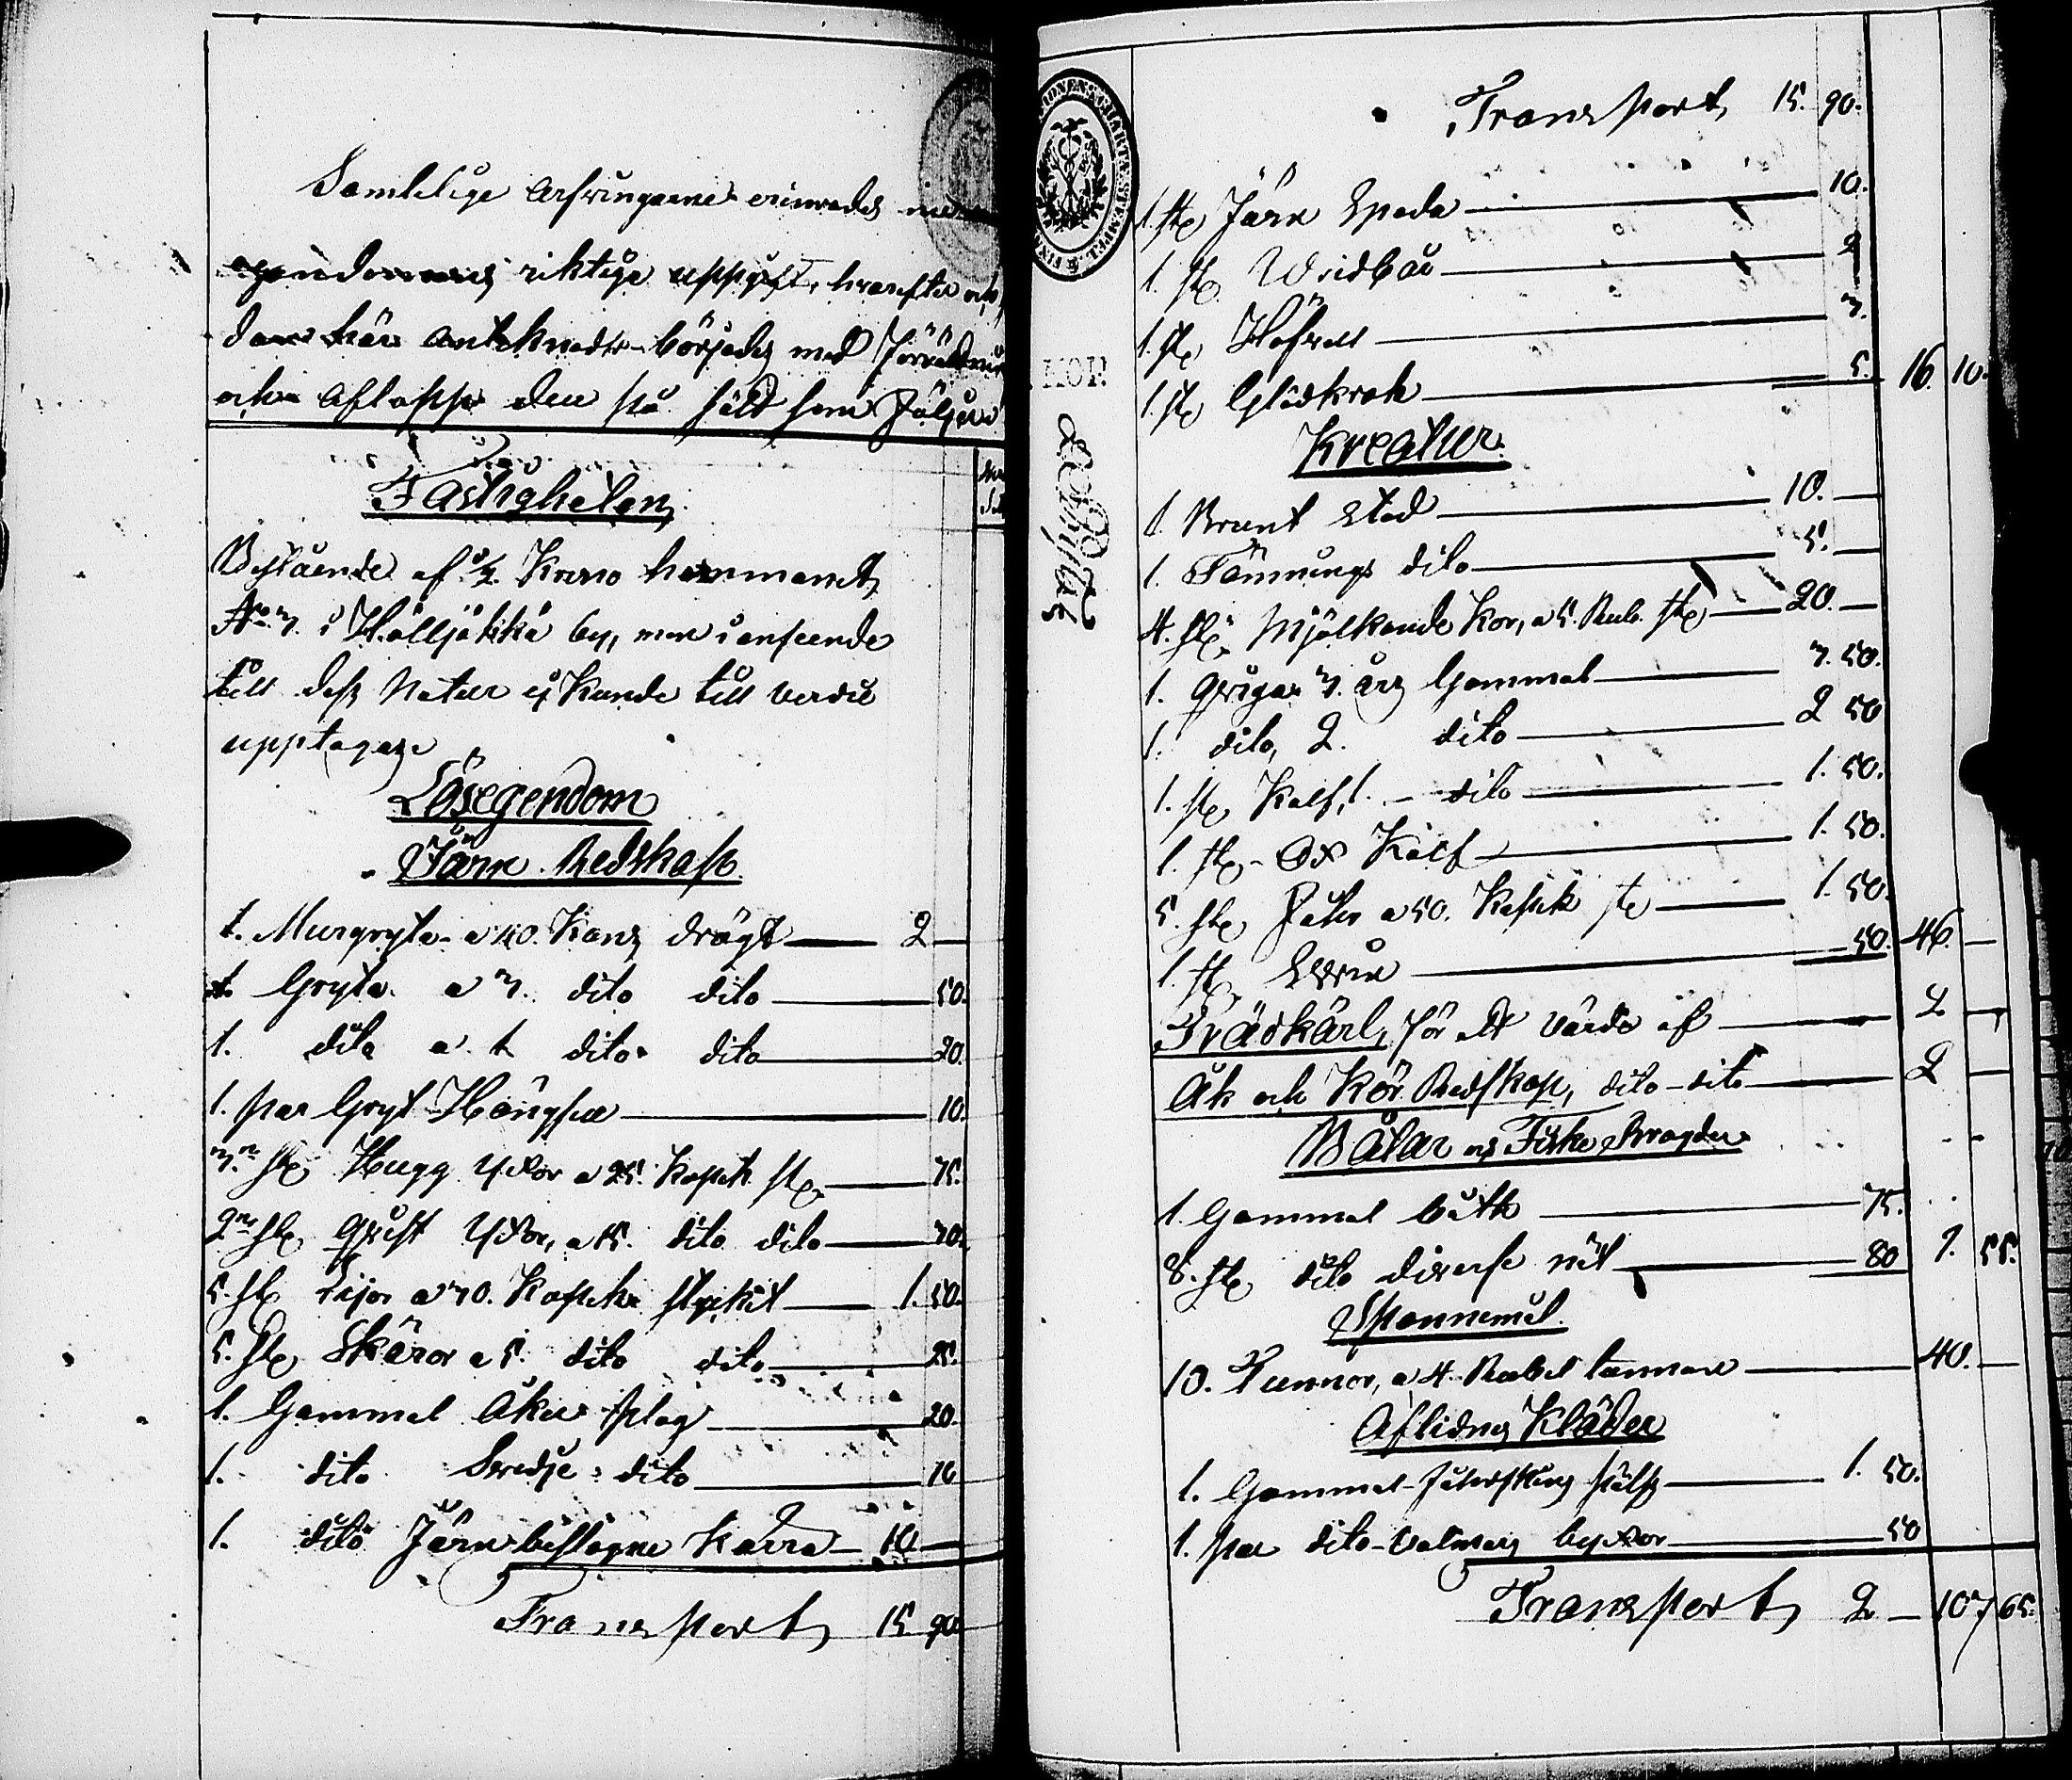 Samtelige arfvingarne erinrades
egendomens riktige uppgift, hvarefter och
den här anteknadt börjades med förrättni
och aflopp den på sätt som följer
Fastigheten
Bestående af 1/2 Krono hemmanet
No 3. i Källjokkå by, men i anseende
till dess Natur ej Kunde till verdie
upptagas
Lösegendom
Järn Redskap
1. Murgryta a 40. Kans drägt — 2 —
1. Gryta a 3. dito dito — 50.
1. dito a 1. dito dito — 20.
1. par Gryt Hängslor — 10.
3. st. Hugg Yxor a 25. Kopek st. — 75.
2. st. Qvist Yxor, a 15. dito dito — 30.
5. st. Lijor a 30. Kopeke stycket — 1. 50.
5. st. Skäror a 5. dito dito — 25.
1. Gammel Åker plog — 20.
1. dito Svedje dito — 10
1. dito Järn beslagne Kärra — 10 —
Transport 15. 90.
Transport 15. 90.
1. st. Järn Spada — 10.
1. st. Vridbår — 2
1. st. Hofvel — 3.
1. st. Glödkrok — 5. 16. 10.
Kreatur
1. Brunt Stod — 10. —
1. Tömnings dito — 5. —
4. st. Mjölkande Kor, a 5. Rub. st. — 20. —
1. Qviga 3. års Gammal — 3. 50.
1. dito, 2. dito — 2 50
1. st. Kalf, 1. dito — 1. 50.
1. st. Ox Kalf — 1. 50.
5. st. Fåhr a 30. Kopek st. — 1. 50.
1. st. Svin — 50. 46. —
Trädkärl, för ett värde af — 2 —
Åk och Kör Redskap, dito dito — 2 —
Båtar och Fiske bragder
1. Gammal båth — 75.
8. st. dito diverse nät — 80 1. 55.
Spannemål
10. Tunnor, a 4. Rubel tunnan — 40. —
Aflidnes Kläder
1. Gammal Fåhrskins päls — 1. 50.
1. par dito Valmars byxor — 50
Transport 2 — 107 65.